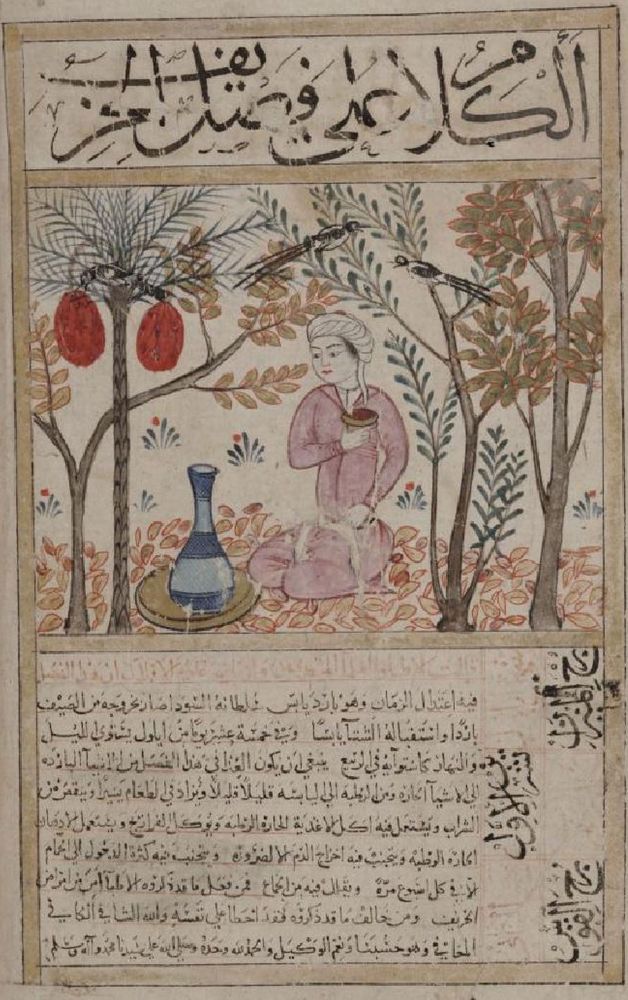 الكلام على فصل الخريف
فيه اعتدال الزمان وهو بارد يابس سلطانه السودا صار خروجه من الصيف
باردا واستقباله الشتا يابسا وفي خمسة عشر يوما من ايلول يستوى الليل
والنهار كاستوايه في الربيع ينبغي ان يكون الغذا في هذا الفصل من الاشيا البارده
الى الاشيا الحاره ومن الرطبه الى اليابسه قليلا قليلا ويزاد في الطعام يسيرا وينقص من
الشراب ويستعمل فيه اكل الاغذية الحارة الرطبه ويوكل الفراريج ويستعمل الادهان
الحاره الرطبه ويجتنب فيه اخراج الدم الا لضروره ويجتنب فيه كثرة الدخول الى الحمام
الا في كل اسبوع مرة ويقلل فيه من الجماع فمن فعل ما قد ذكروه الاطبا امن من امراض
الخريف ومن خالف ما قد ذكروه فقد اخطا على نفسه والله الشافي الكافي
المعافي وهو حسبنا ونعم الوكيل والحمد لله وحده وصلى الله على سيدنا محمد وآله
برج الميزان
تشرين الاول
برج القوس